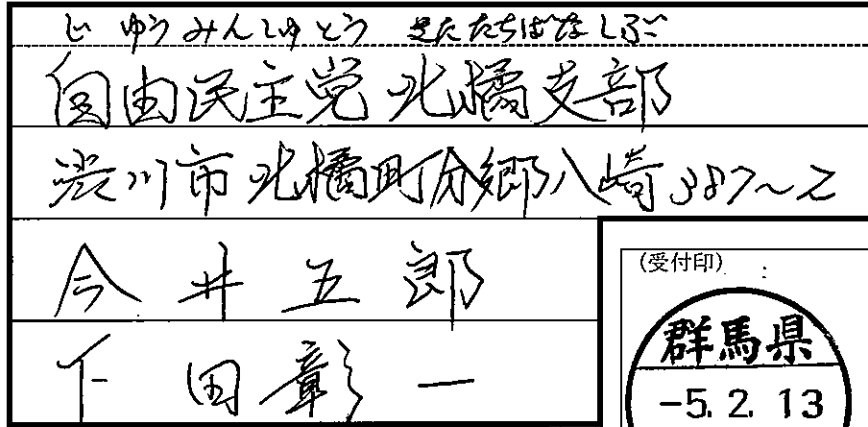 じゆうみんしゅとう きたたちばなしぶ
自由民主党 北橘支部
渋川市北橘町分郷八崎387~2
今井五郎
下田彰一
(受付印)
群馬県
-5.2.13